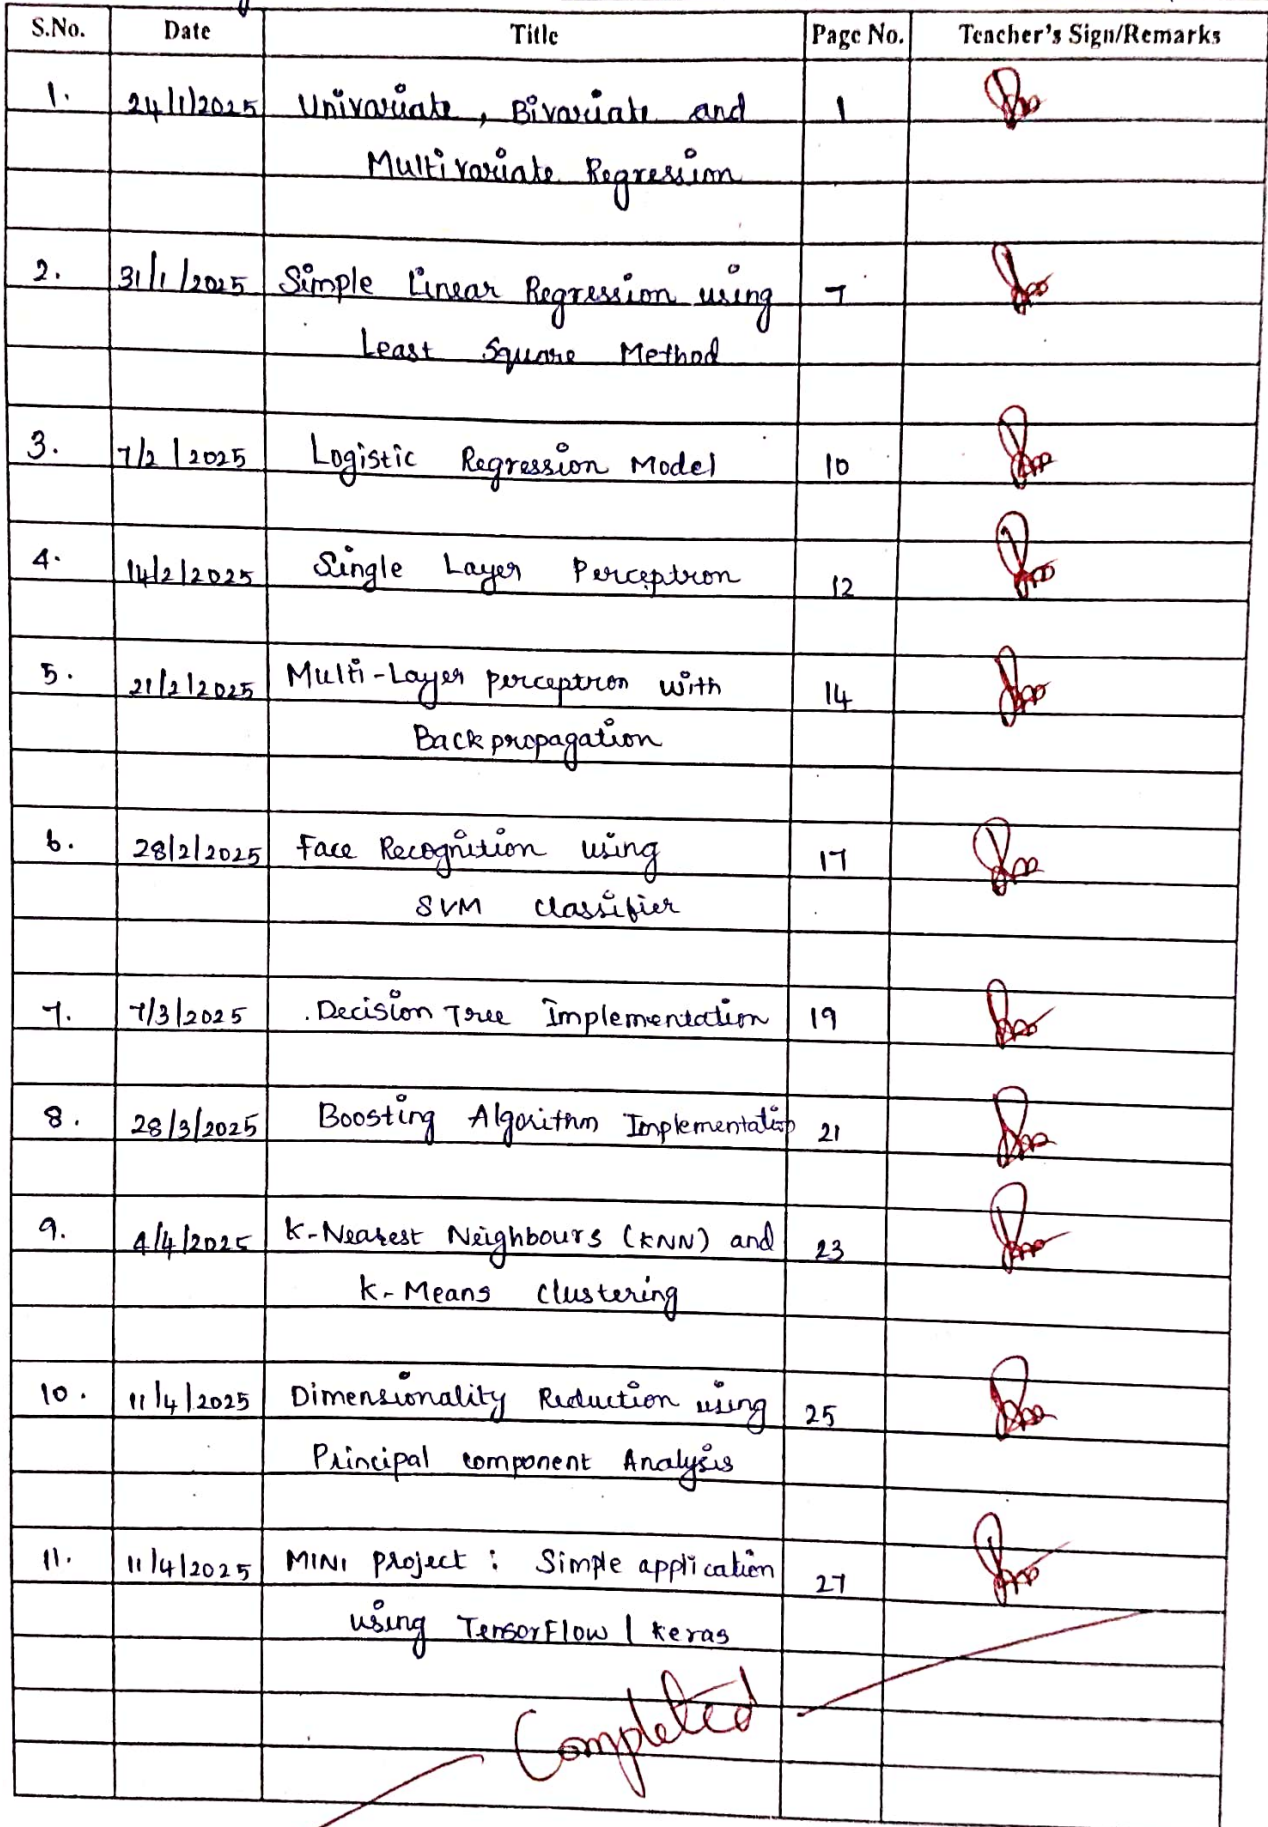 S.No. Date Title Page No. Teacher's Sign/Remarks
1. 24/1/2025 Univariate, Bivariate and 1
Multivariate Regression
2. 31/1/2025 Simple Linear Regression using 7
Least Square Method
3. 7/2/2025 Logistic Regression Model 10
4. 14/2/2025 Single Layer Perceptron 12
5. 21/2/2025 Multi-Layer perceptron with 14
Backpropagation
6. 28/2/2025 Face Recognition using 17
SVM classifier
7. 7/3/2025 Decision Tree Implementation 19
8. 28/3/2025 Boosting Algorithm Implementation 21
9. 4/4/2025 K-Nearest Neighbours (KNN) and 23
K-Means clustering
10. 11/4/2025 Dimensionality Reduction using 25
Principal component Analysis
11. 11/4/2025 MINI project : Simple application 27
using TensorFlow | keras
Completed